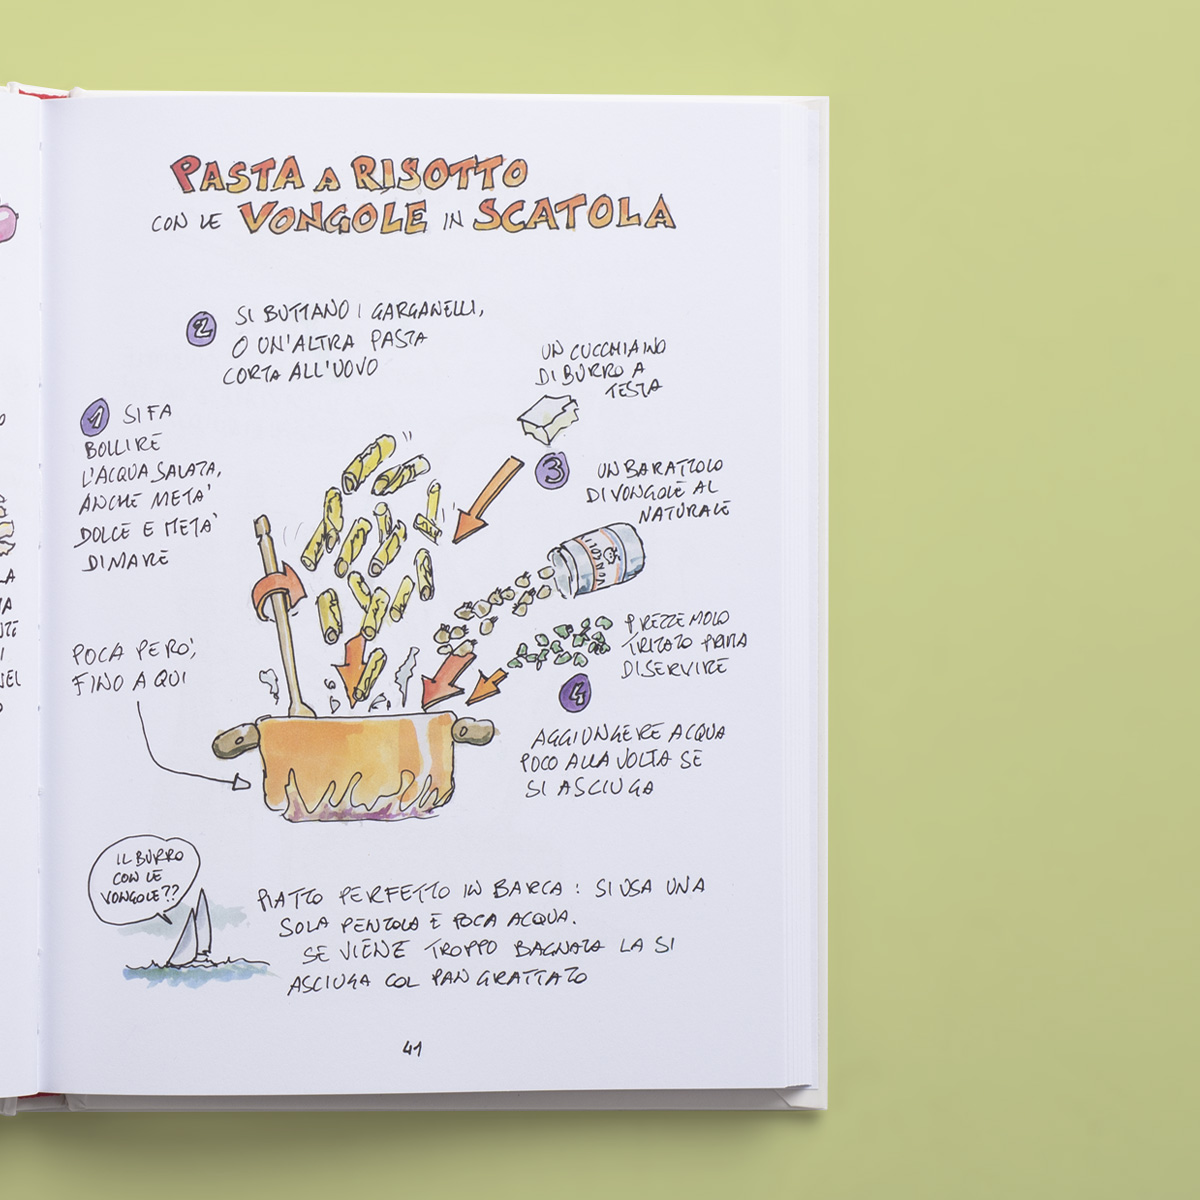 PASTA A RISOTTO
CON LE VONGOLE IN SCATOLA
2 SI BUTTANO I GARGANELLI,
O UN'ALTRA PASTA
CORTA ALL'UOVO
UN CUCCHIAINO
DI BURRO A
TESTA
1 SI FA
BOLLIRE
L'ACQUA SALATA,
ANCHE META'
DOLCE E META'
DI MARE
3 UN BARATTOLO
DI VONGOLE AL
NATURALE
VONGOLI
PREZZEMOLO
TRITATO PRIMA
DI SERVIRE
POCA PERO',
FINO A QUI
4
AGGIUNGERE ACQUA
POCO ALLA VOLTA SE
SI ASCIUGA
IL BURRO
CON LE
VONGOLE??
PIATTO PERFETTO IN BARCA: SI USA UNA
SOLA PENTOLA E POCA ACQUA.
SE VIENE TROPPO BAGNATA LA SI
ASCIUGA COL PAN GRATTATO
41